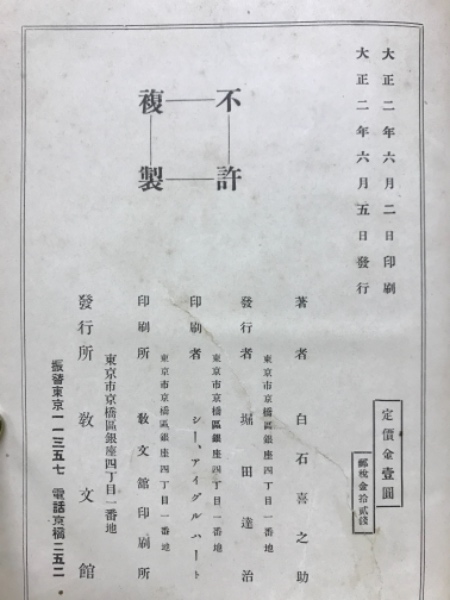 大正二年六月二日印刷
大正二年六月五日發行
不許
複製
定價金壹圓
郵稅金拾貳錢
著者 白石喜之助
東京市京橋區銀座四丁目一番地
發行者 堀田達治
東京市京橋區銀座四丁目一番地
印刷者 シー、アイグルハート
東京市京橋區銀座四丁目一番地
印刷所 敎文館印刷所
東京市京橋區銀座四丁目一番地
發行所 敎文館
振替東京一一三五七 電話京橋二五二